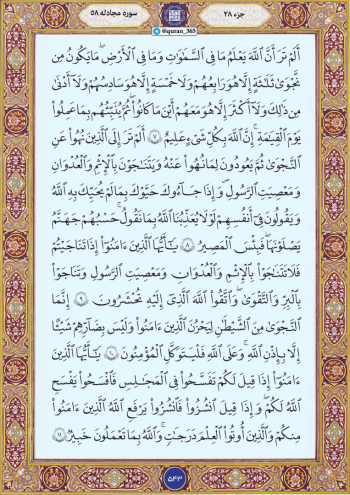 جزء ۲۸
@quran_365
سوره مجادله ۵۸
أَلَمْ تَرَ أَنَّ اللَّهَ يَعْلَمُ مَا فِي السَّمَاوَاتِ وَمَا فِي الْأَرْضِ ۖ مَا يَكُونُ مِن
نَّجْوَىٰ ثَلَاثَةٍ إِلَّا هُوَ رَابِعُهُمْ وَلَا خَمْسَةٍ إِلَّا هُوَ سَادِسُهُمْ وَلَا أَدْنَىٰ
مِن ذَٰلِكَ وَلَا أَكْثَرَ إِلَّا هُوَ مَعَهُمْ أَيْنَ مَا كَانُوا ۖ ثُمَّ يُنَبِّئُهُم بِمَا عَمِلُوا
يَوْمَ الْقِيَامَةِ ۚ إِنَّ اللَّهَ بِكُلِّ شَيْءٍ عَلِيمٌ ﴿۷﴾ أَلَمْ تَرَ إِلَى الَّذِينَ نُهُوا عَنِ
النَّجْوَىٰ ثُمَّ يَعُودُونَ لِمَا نُهُوا عَنْهُ وَيَتَنَاجَوْنَ بِالْإِثْمِ وَالْعُدْوَانِ
وَمَعْصِيَتِ الرَّسُولِ وَإِذَا جَاءُوكَ حَيَّوْكَ بِمَا لَمْ يُحَيِّكَ بِهِ اللَّهُ
وَيَقُولُونَ فِي أَنفُسِهِمْ لَوْلَا يُعَذِّبُنَا اللَّهُ بِمَا نَقُولُ ۚ حَسْبُهُمْ جَهَنَّمُ
يَصْلَوْنَهَا ۖ فَبِئْسَ الْمَصِيرُ ﴿۸﴾ يَا أَيُّهَا الَّذِينَ آمَنُوا إِذَا تَنَاجَيْتُمْ
فَلَا تَتَنَاجَوْا بِالْإِثْمِ وَالْعُدْوَانِ وَمَعْصِيَتِ الرَّسُولِ وَتَنَاجَوْا
بِالْبِرِّ وَالتَّقْوَىٰ ۖ وَاتَّقُوا اللَّهَ الَّذِي إِلَيْهِ تُحْشَرُونَ ﴿۹﴾ إِنَّمَا
النَّجْوَىٰ مِنَ الشَّيْطَانِ لِيَحْزُنَ الَّذِينَ آمَنُوا وَلَيْسَ بِضَارِّهِمْ شَيْئًا
إِلَّا بِإِذْنِ اللَّهِ ۚ وَعَلَى اللَّهِ فَلْيَتَوَكَّلِ الْمُؤْمِنُونَ ﴿۱۰﴾ يَا أَيُّهَا الَّذِينَ
آمَنُوا إِذَا قِيلَ لَكُمْ تَفَسَّحُوا فِي الْمَجَالِسِ فَافْسَحُوا يَفْسَحِ
اللَّهُ لَكُمْ ۖ وَإِذَا قِيلَ انشُزُوا فَانشُزُوا يَرْفَعِ اللَّهُ الَّذِينَ آمَنُوا
مِنكُمْ وَالَّذِينَ أُوتُوا الْعِلْمَ دَرَجَاتٍ ۚ وَاللَّهُ بِمَا تَعْمَلُونَ خَبِيرٌ ﴿۱۱﴾
۵۴۳